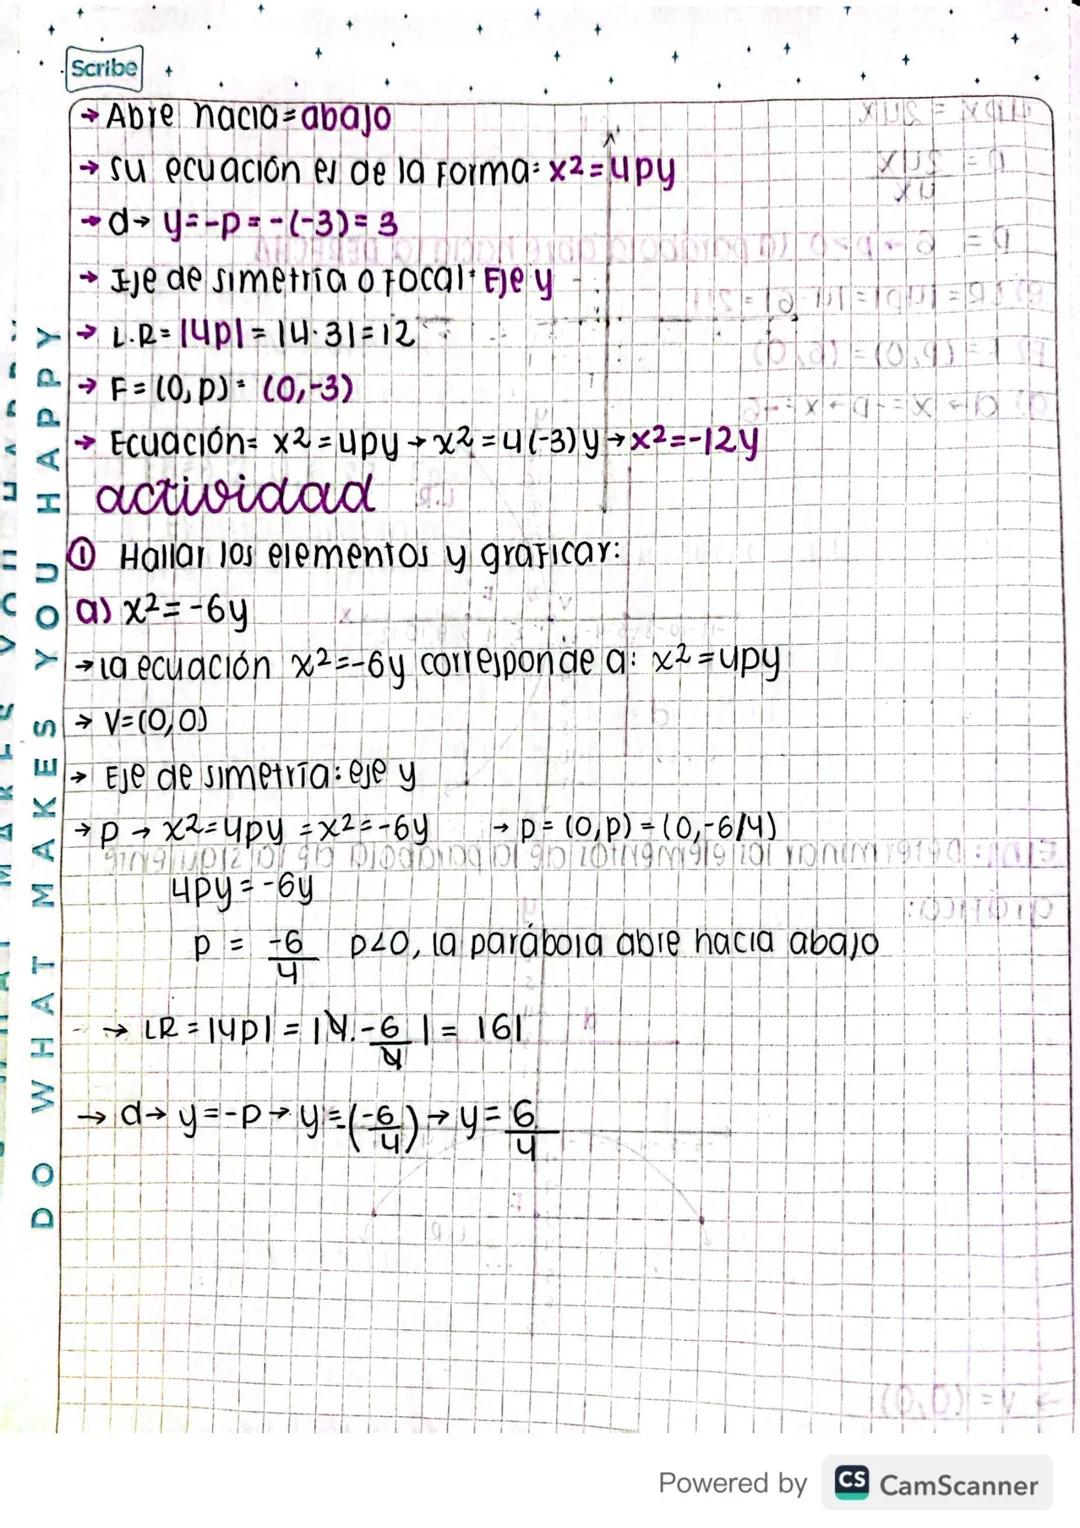 Scribe
→ Abre hacia = abajo
→ su ecuación es de la forma: x2 = 4py
→ d → y = -p = -(-3) = 3
→ Eje de simetría o Focal: Eje y
→ L.R = |4p| = |4·3| = 12
→ F = (0, p) = (0, -3)
→ Ecuación = x2 = 4py → x2 = 4(-3)y → x2 = -12y
actividad
① Hallar los elementos y graficar:
a) x2 = -6y
→ la ecuación x2 = -6y corresponde a: x2 = 4py
→ V = (0, 0)
→ Eje de simetría: eje y
→ p → x2 = 4py = x2 = -6y → p = (0, p) = (0, -6/4)
4py = -6y
p = -6/4 p<0, la parábola abre hacia abajo
→ LR = |4p| = |4·-6/4| = |6|
→ d → y = -p → y = -(-6/4) → y = 6/4
DO WHAT MAKES YOU HAPPY
Powered by CS CamScanner